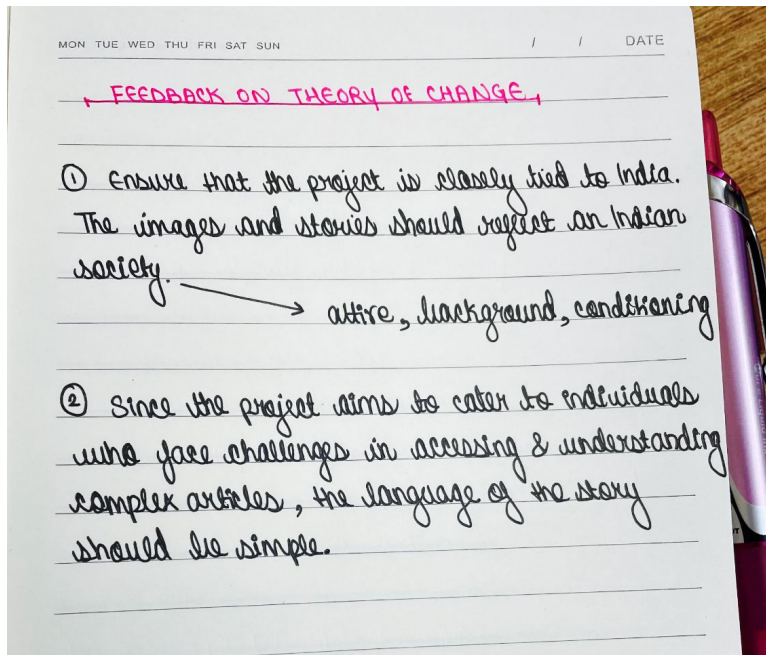 MON TUE WED THU FRI SAT SUN / / DATE
FEEDBACK ON THEORY OF CHANGE
① Ensure that the project is closely tied to India.
The images and stories should reflect an Indian
society.
attire, background, conditioning
② Since the project aims to cater to individuals
who face challenges in accessing & understanding
complex articles, the language of the story
should be simple.